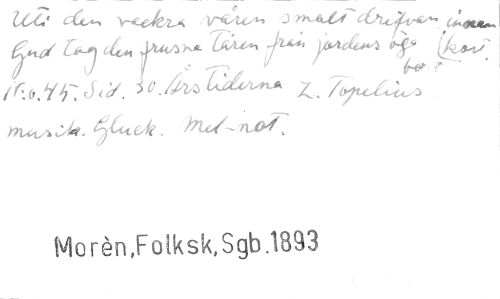 Uti den vackra våren smält drifvan innan
Gud tag den frusna tåren från jordens öga (kort.
bort
N:o.45. Sid. 30. Årstiderna Z. Topelius
musik. Gluck. Mel-not.
Morèn,Folksk,Sgb.1893